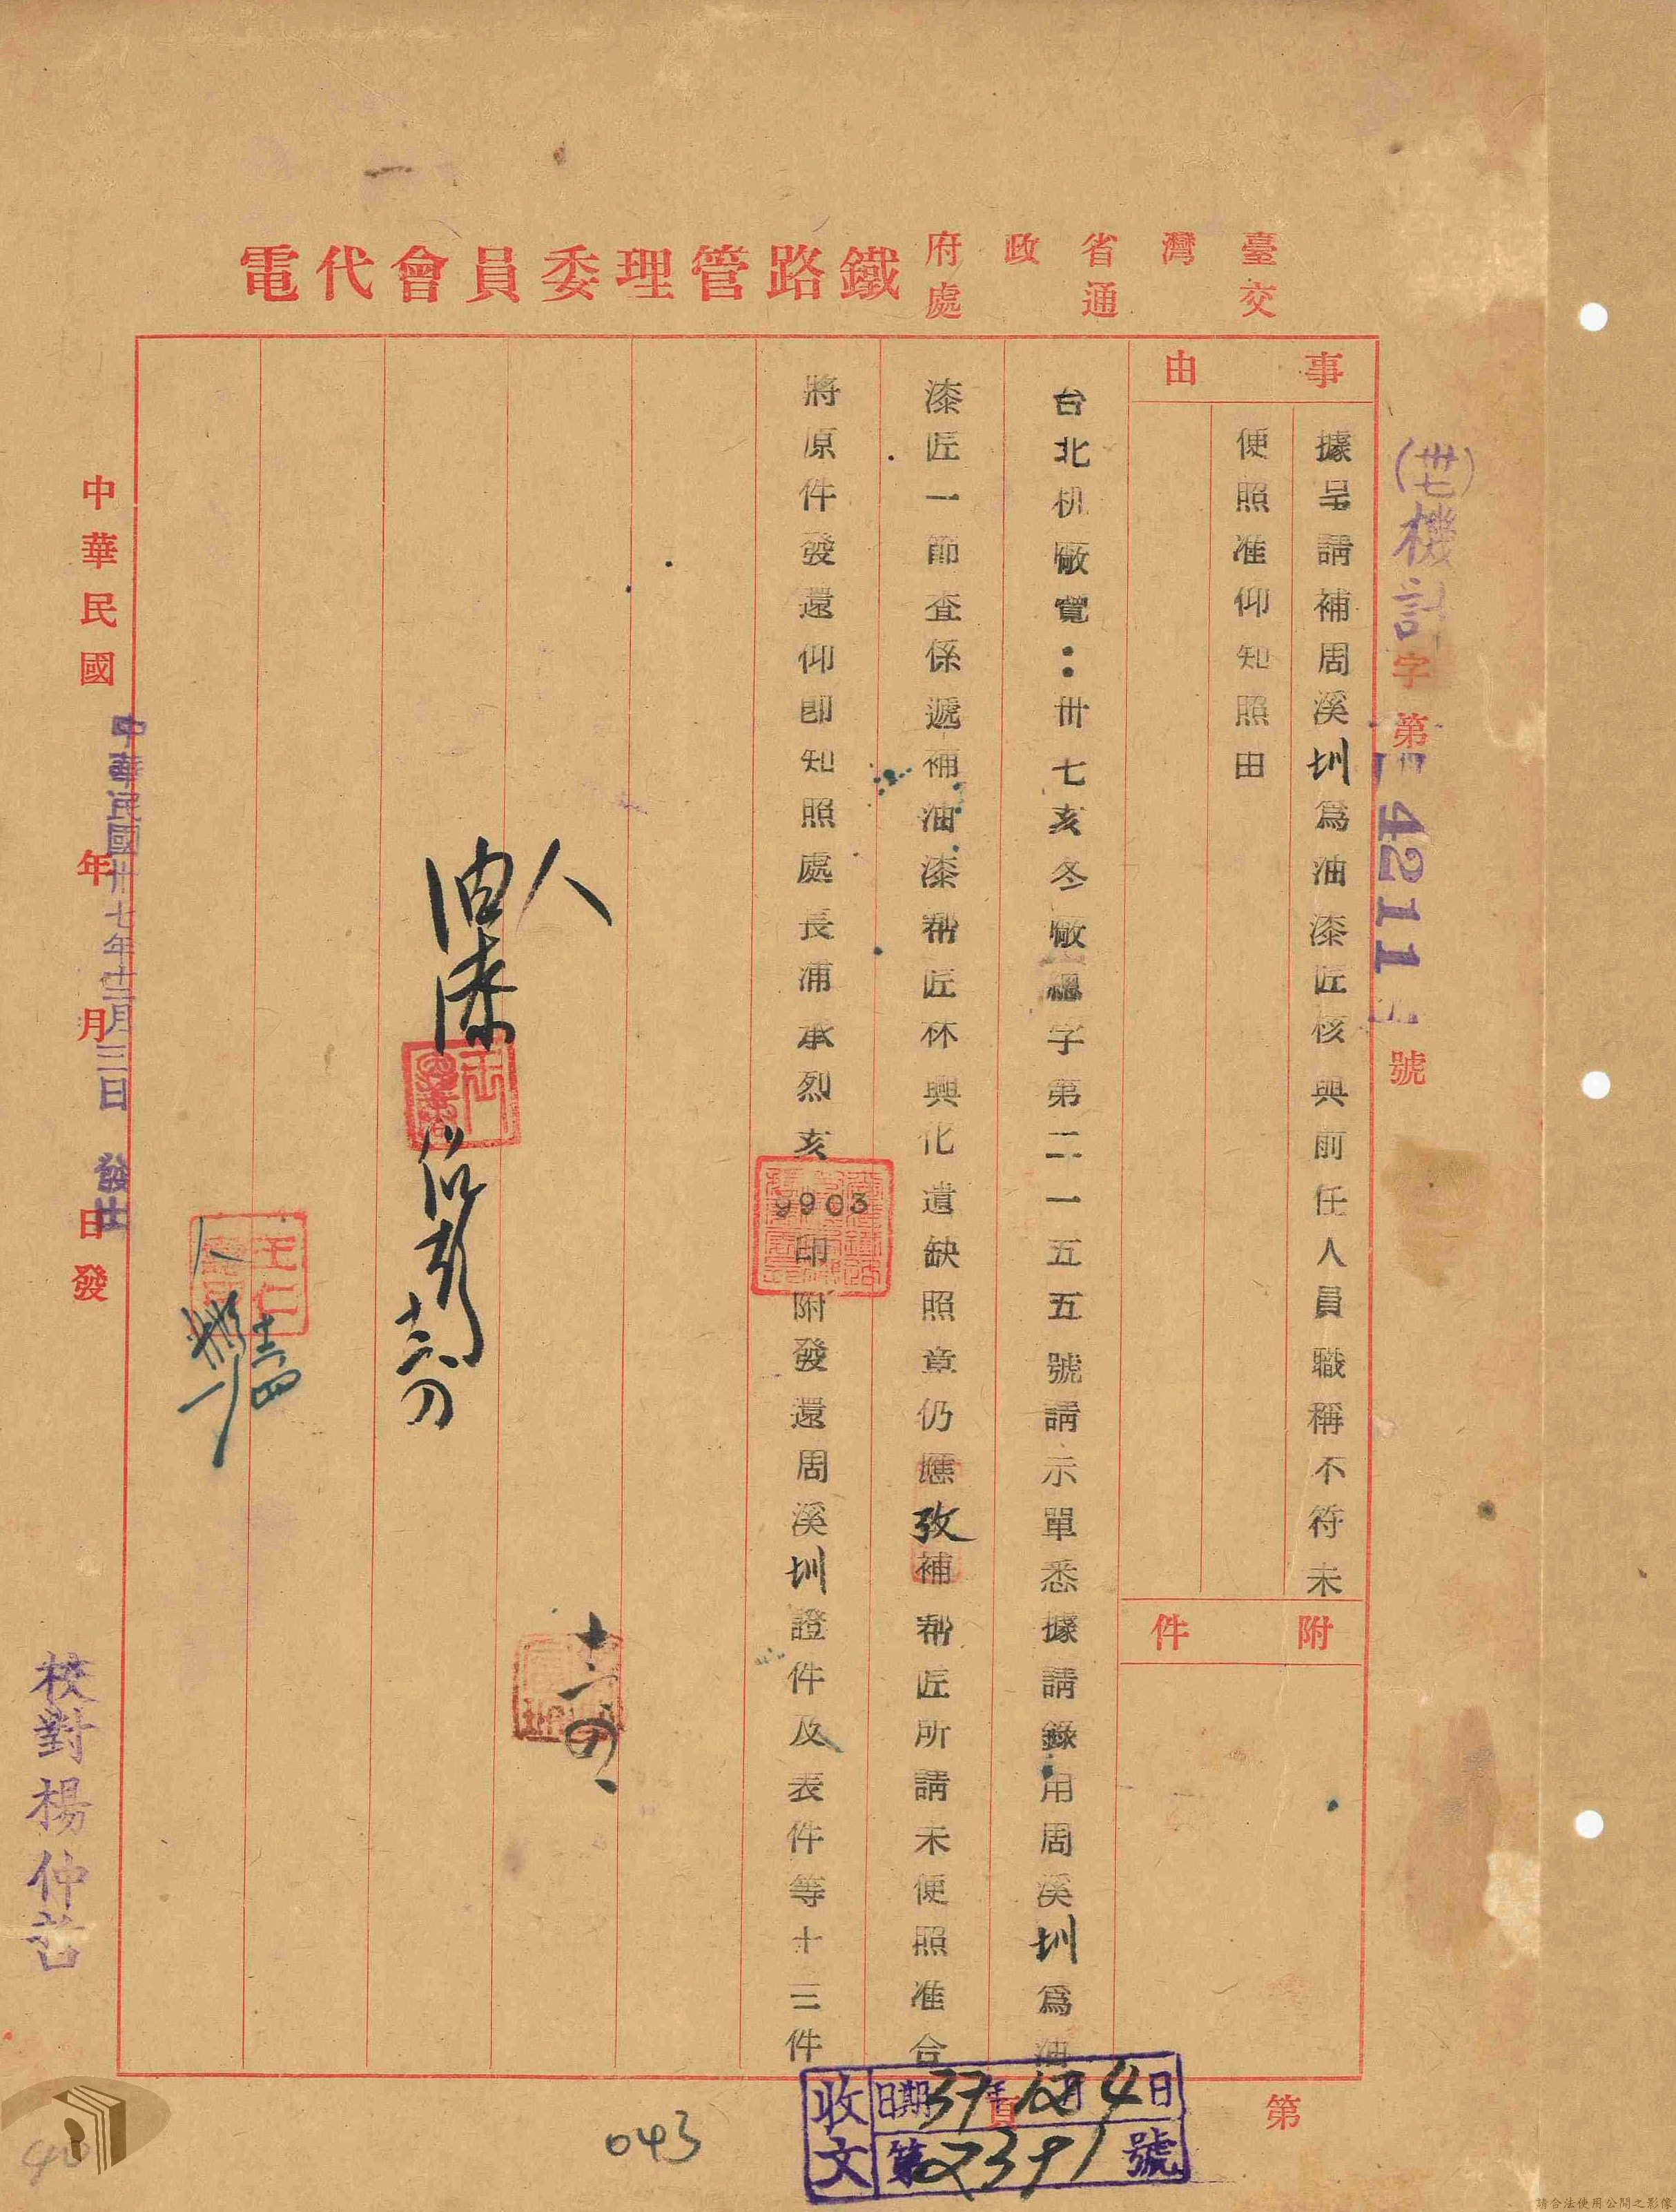 臺灣省政府
交通處
鐵路管理委員會代電
(卅七)機計字第14211號
事由
據呈請補周溪圳爲油漆匠核與前任人員職稱不符未
便照准仰知照由
附件
台北机廠覽：卅七亥冬廠總字第二一五五號請示單悉據請錄用周溪圳爲油
漆匠一節查係遞補油漆幫匠林興化遺缺照章仍應攷補幫匠所請未便照准合
將原件發還仰卽知照處長浦承烈亥
9903
印附發還周溪圳證件及表件等十三件
十二四
人
油漆
王仁
十二四
中華民國年月日發
中華民國卅七年十二月三日發出
校對楊仲
第頁
收文
日期37年12月4日
第2391號
043
40
請合法使用公開之影像